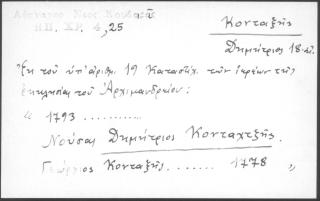 Αθηναγορ Νεος Κουβαρᾶς
ΗΠ. ΧΡ. 4,25
Κονταξῆς
Δημήτριος 18 αἰ.
Ἐκ τοῦ ὑπ' ἀριθμ. 19 Καταστίχ. τῶν ἱερέων τῆς
ἐκκλησίας τοῦ Ἀρχιμανδρείου:
" 1793 ...........
Νούσας Δημήτριος Κονταχτζῆς.
Γεώργιος Κονταξῆς....... 1778 "